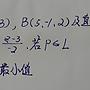 3), B(5,-1,2) 及直
z-3/-2. 若 P∈L
最小值